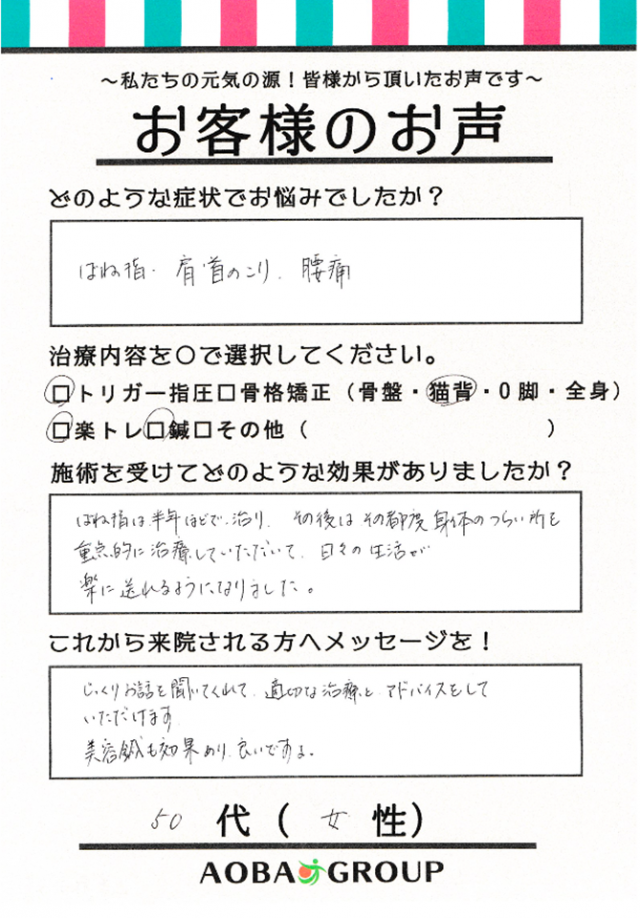 ～私たちの元気の源！皆様から頂いたお声です～
お客様のお声
どのような症状でお悩みでしたか？
ばね指・肩首のこり、腰痛
治療内容を〇で選択してください。
□トリガー指圧□骨格矯正（骨盤・猫背・O脚・全身）
□楽トレ□鍼□その他（　　　　　）
施術を受けてどのような効果がありましたか？
ばね指は半年ほどで治り、その後はその都度身体のつらい所を
重点的に治療していただいて、日々の生活が
楽に送れるようになりました。
これから来院される方へメッセージを！
じっくりお話を聞いてくれて、適切な治療と、アドバイスをして
いただけます
美容鍼も効果あり、良いですよ。
50代（女性）
AOBA GROUP